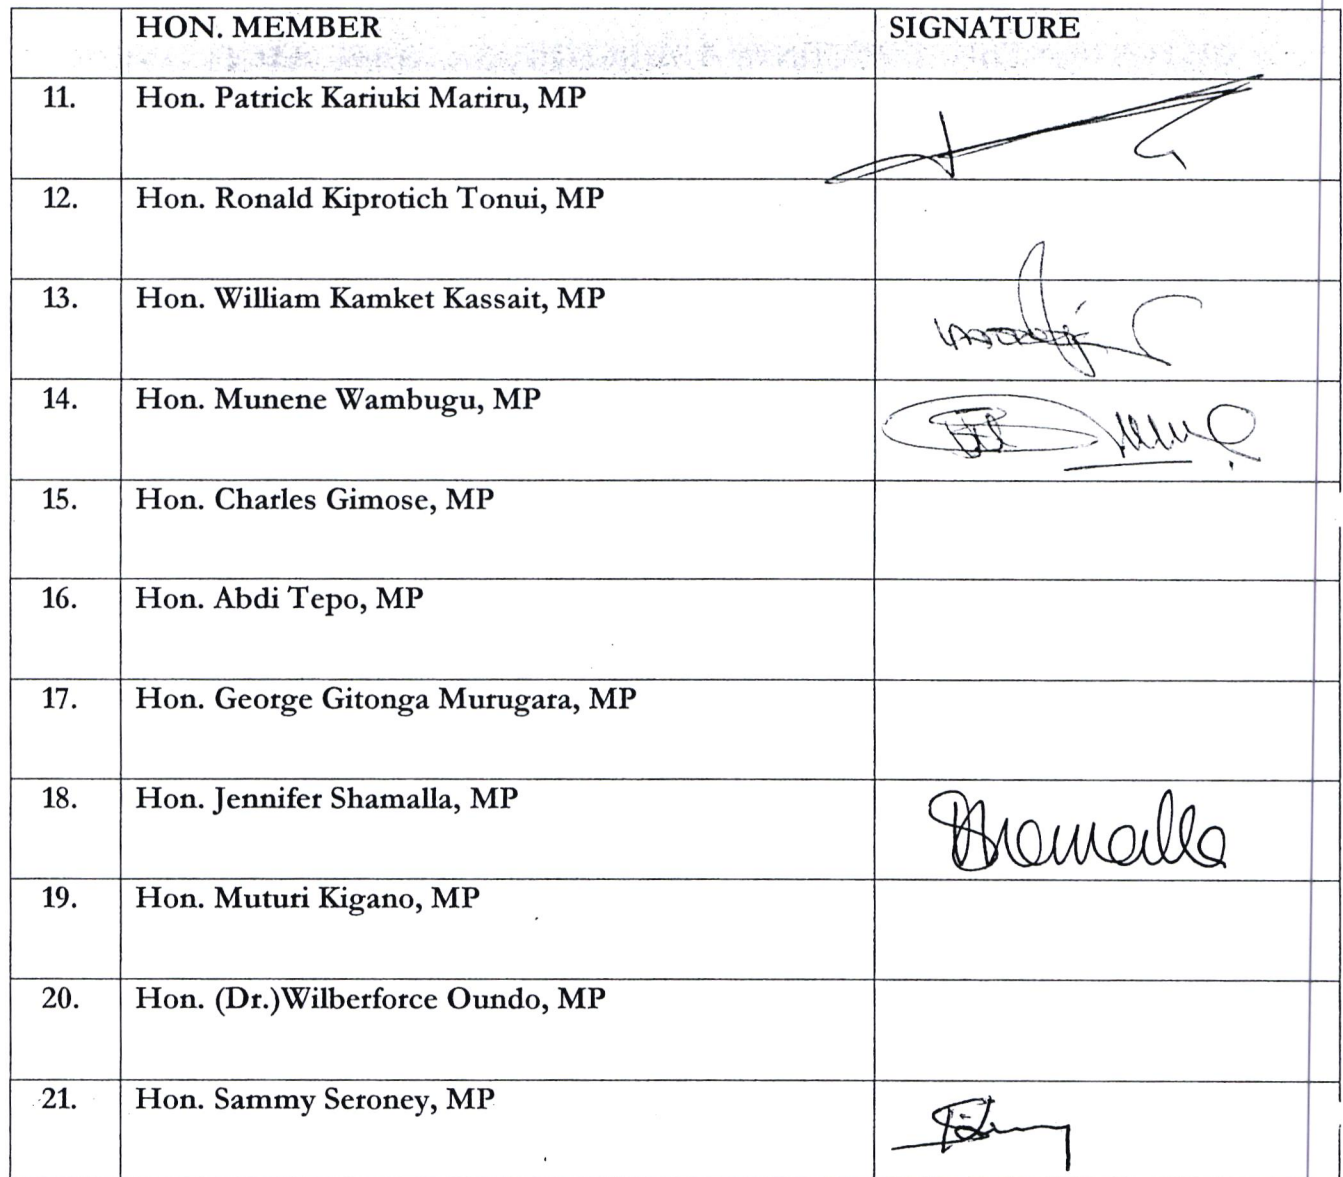 HON. MEMBER SIGNATURE
11. Hon. Patrick Kariuki Mariru, MP
12. Hon. Ronald Kiprotich Tonui, MP
13. Hon. William Kamket Kassait, MP
14. Hon. Munene Wambugu, MP
15. Hon. Charles Gimose, MP
16. Hon. Abdi Tepo, MP
17. Hon. George Gitonga Murugara, MP
18. Hon. Jennifer Shamalla, MP Shamalla
19. Hon. Muturi Kigano, MP
20. Hon. (Dr.)Wilberforce Oundo, MP
21. Hon. Sammy Seroney, MP